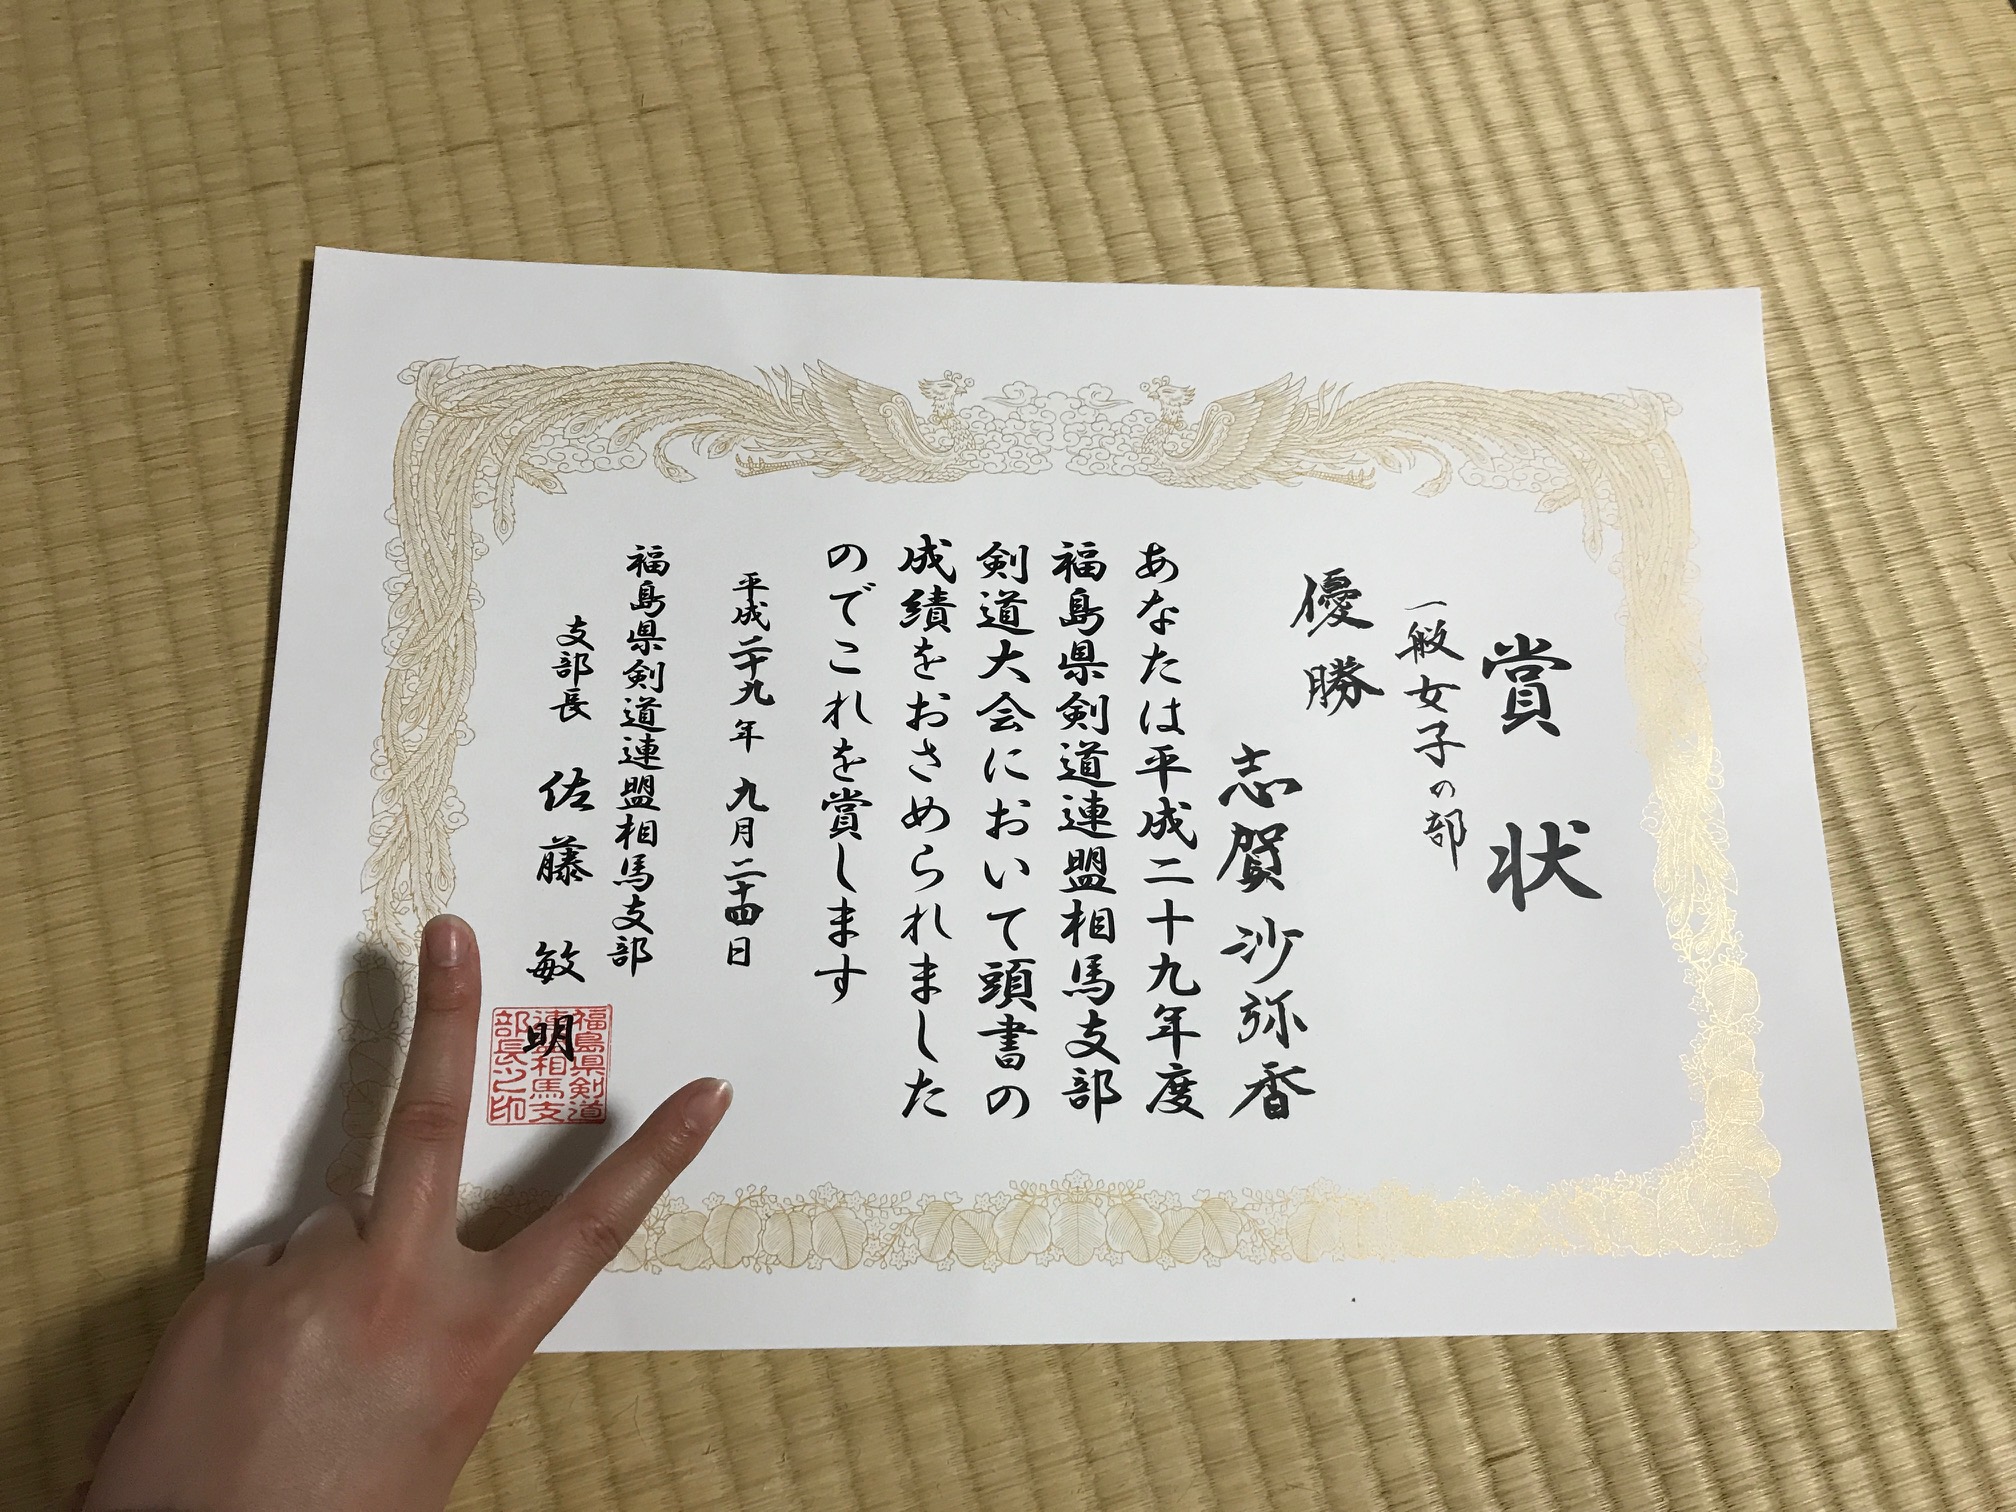 賞状
一般女子の部
優勝
志賀沙弥香
あなたは平成二十九年度
福島県剣道連盟相馬支部
剣道大会において頭書の
成績をおさめられました
のでこれを賞します
平成二十九年 九月二十四日
福島県剣道連盟相馬支部
支部長 佐藤敏明
福島県剣道
連盟相馬支
部長之印